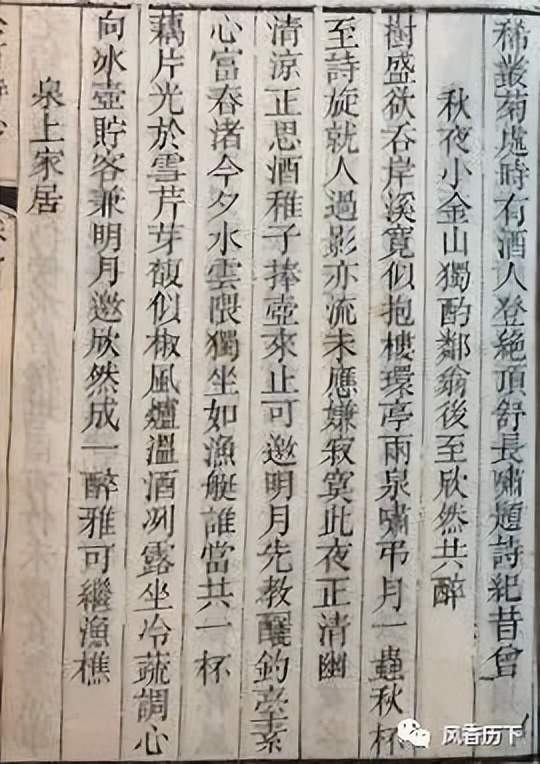 稀叢菊處時有酒人登絕頂舒長嘯題詩紀昔曾
秋夜小金山獨酌鄰翁後至欣然共醉
樹盛欲吞岸溪寬似抱樓環亭雨泉嘯弔月一蟲秋杯
至詩旋就人過影亦流未應嫌寂寞此夜正清幽
清涼正思酒稚子捧壺來止可邀明月先教釃釣臺素
心富春渚今夕水雲隈獨坐如漁艇誰當共一杯
藕片光於雪芹芽馥似椒風爐溫酒冽露坐冷蔬調心
向冰壺貯客兼明月邀欣然成一醉雅可繼漁樵
泉上家居
风香历下